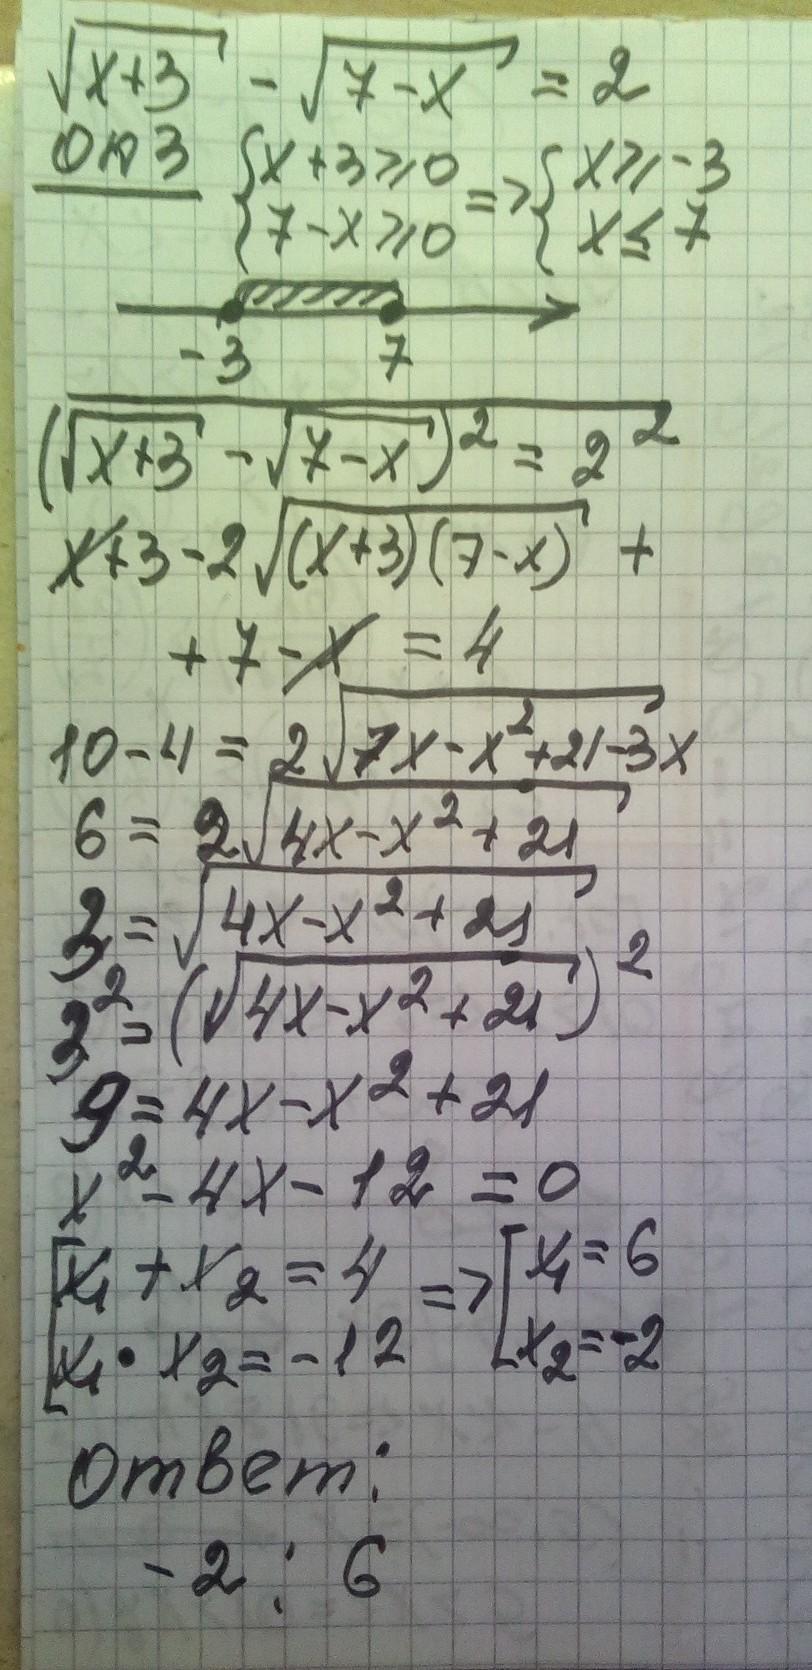 √(x+3) - √(7-x) = 2
ОДЗ {x+3≥0 => {x≥-3
{7-x≥0 {x≤7
-3 7
(√(x+3) - √(7-x))² = 2²
x+3-2√((x+3)(7-x)) +
+7-x = 4
10-4 = 2√(7x-x²+21-3x)
6 = 2√(4x-x²+21)
3 = √(4x-x²+21)
3² = (√(4x-x²+21))²
9 = 4x-x²+21
x²-4x-12 = 0
[x₁+x₂ = 4 => [x₁ = 6
[x₁•x₂ = -12 [x₂ = -2
Ответ:
-2; 6